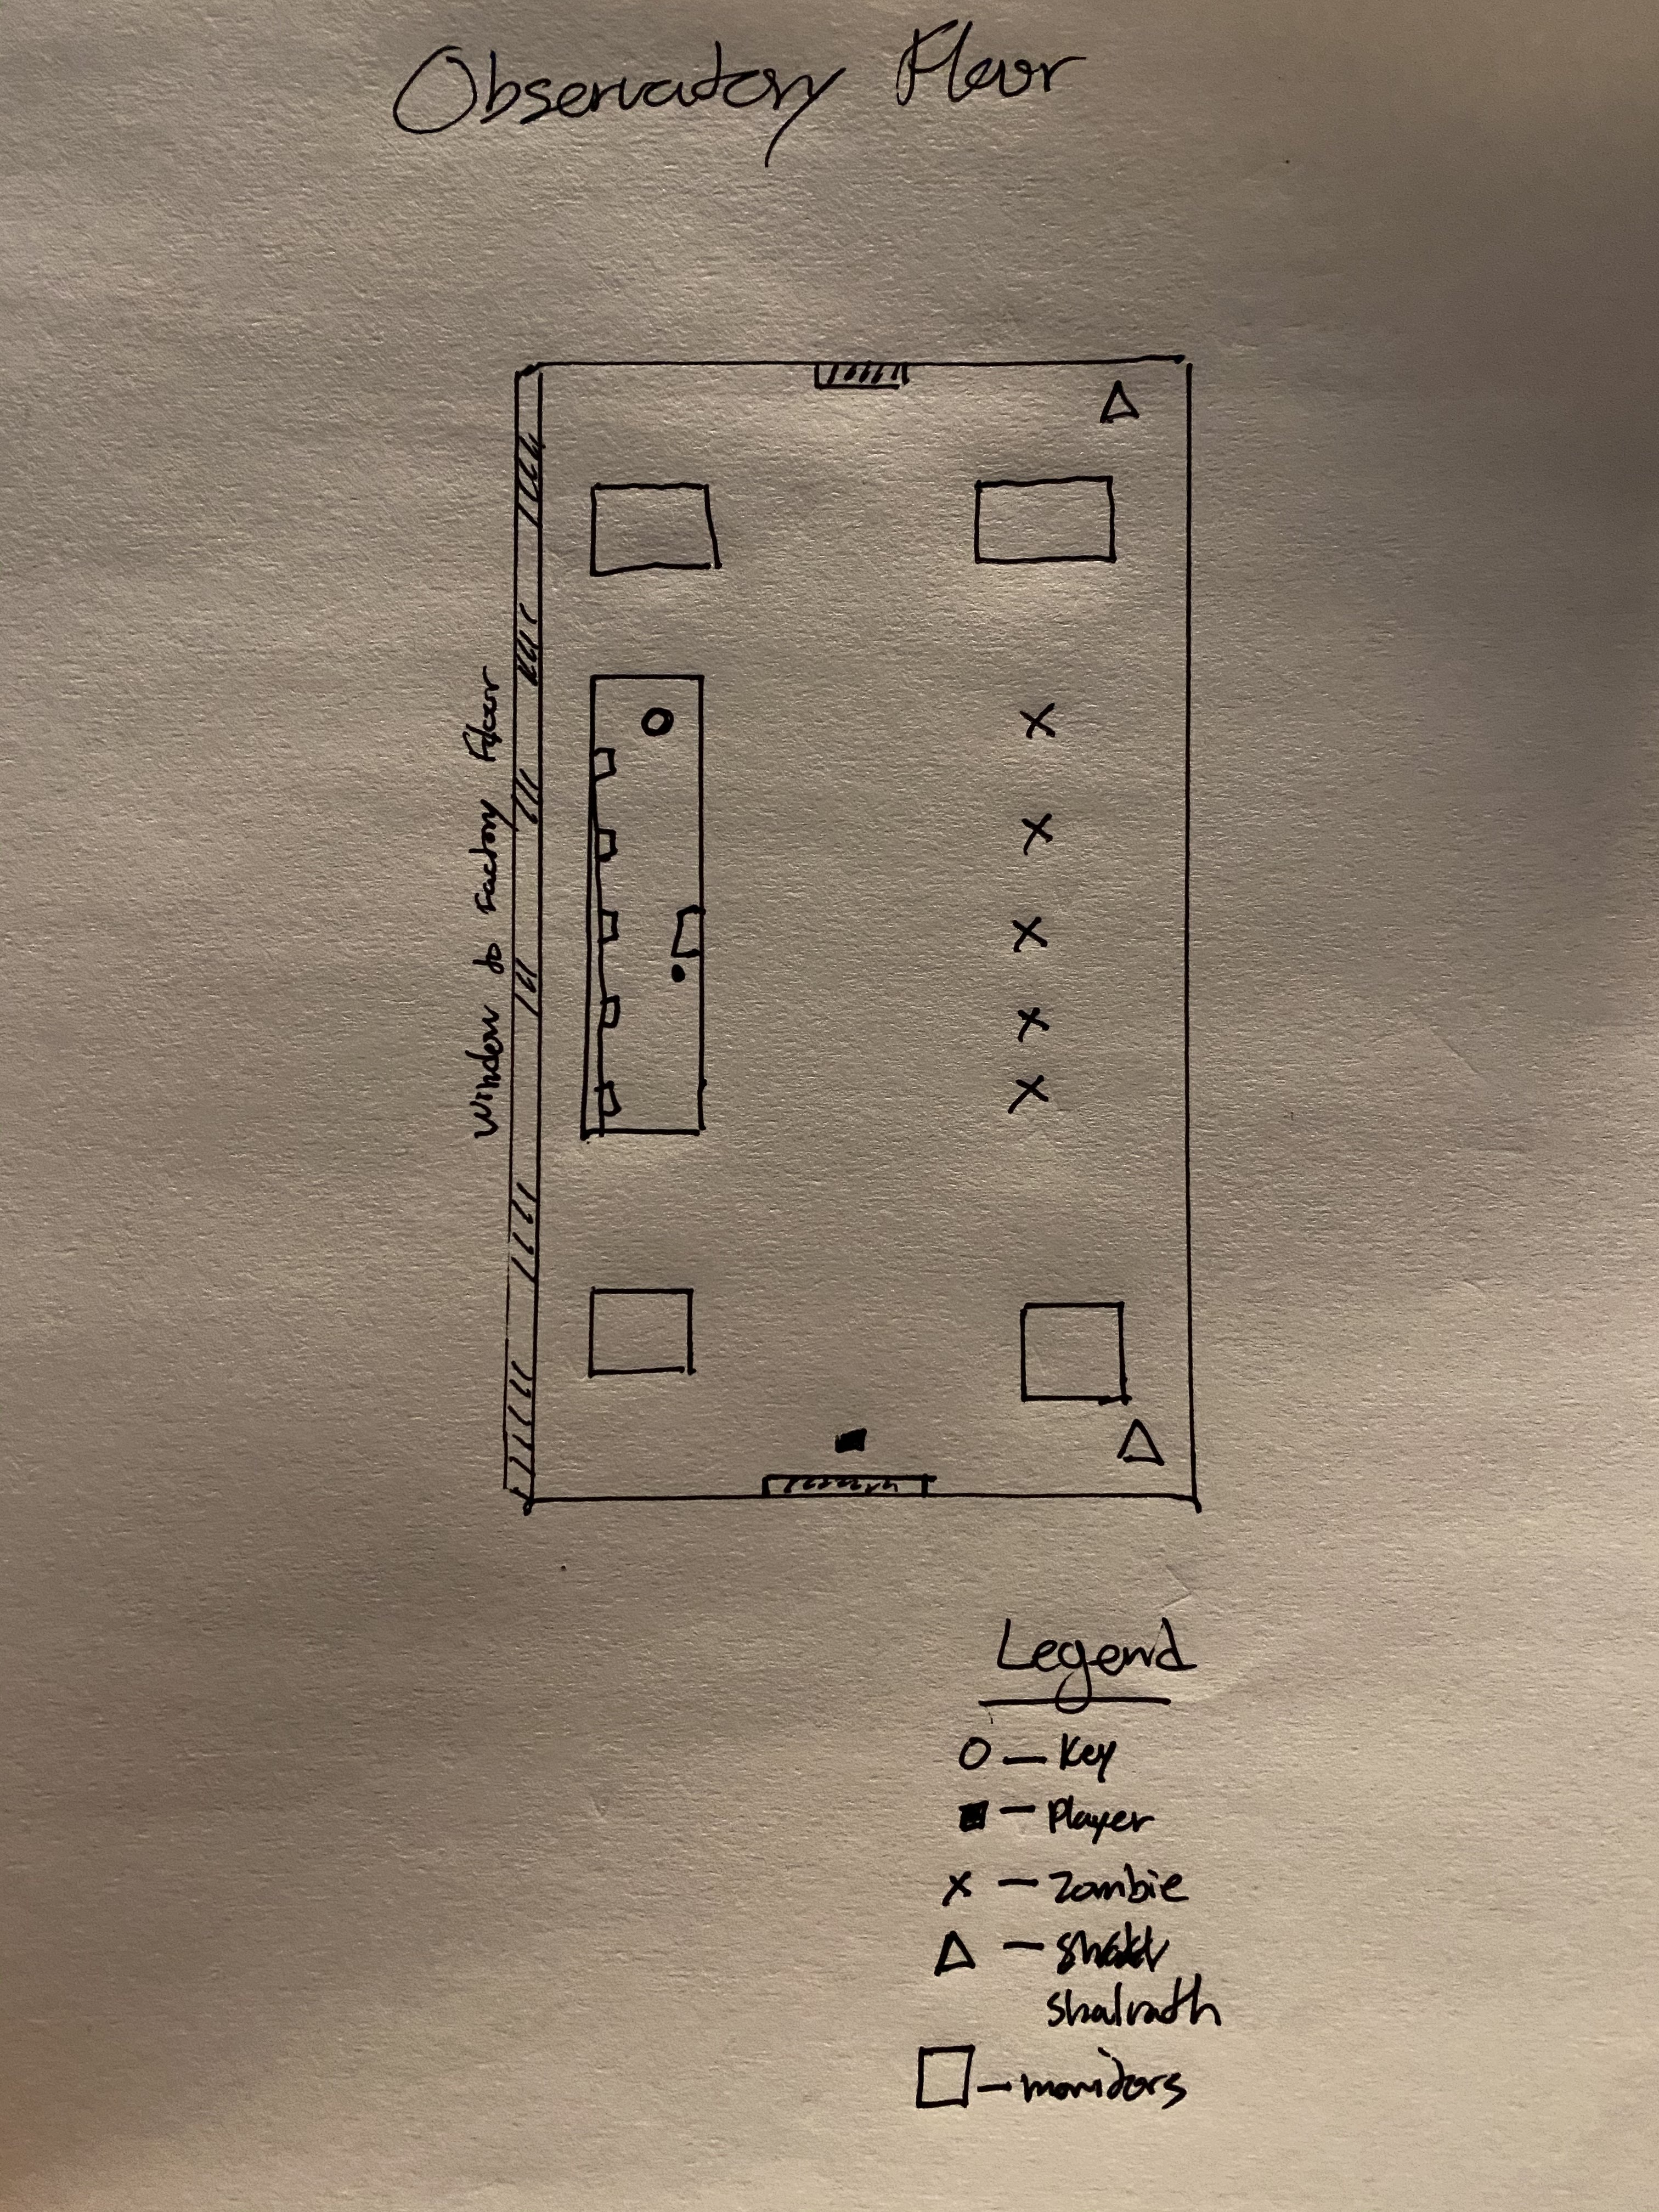 Observatory Floor
Window to Factory Floor
Legend
O — Key
■ — Player
x — Zombie
△ —
shalrath
□ — monitors